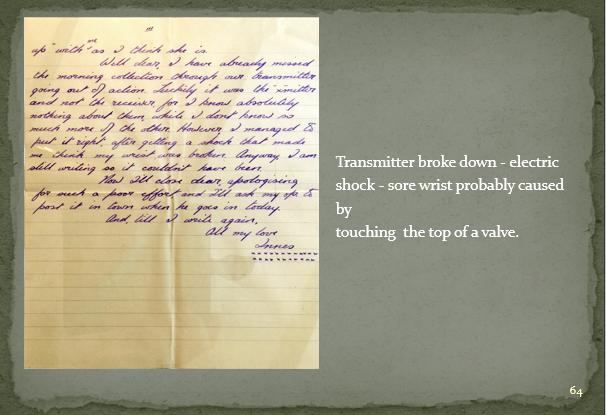 "'
up" with me as I think she is.
Well dear, I have already missed
the morning collection through our transmitter
going out of action. Luckily it was the xmitter
and not the receiver, for I know absolutely
nothing about them, while I dont know so
much more of the other. However, I managed to
put it right, after getting a shock that made
me think my wrist was broken. Anyway, I am
still writing so it couldn't have been.
Now I'll close dear, apologising
for such a poor effort and I'll ask my to
post it in town when he goes in today.
And, till I write again,
All my love
Innes
Transmitter broke down - electric
shock - sore wrist probably caused
by
touching the top of a valve.
64